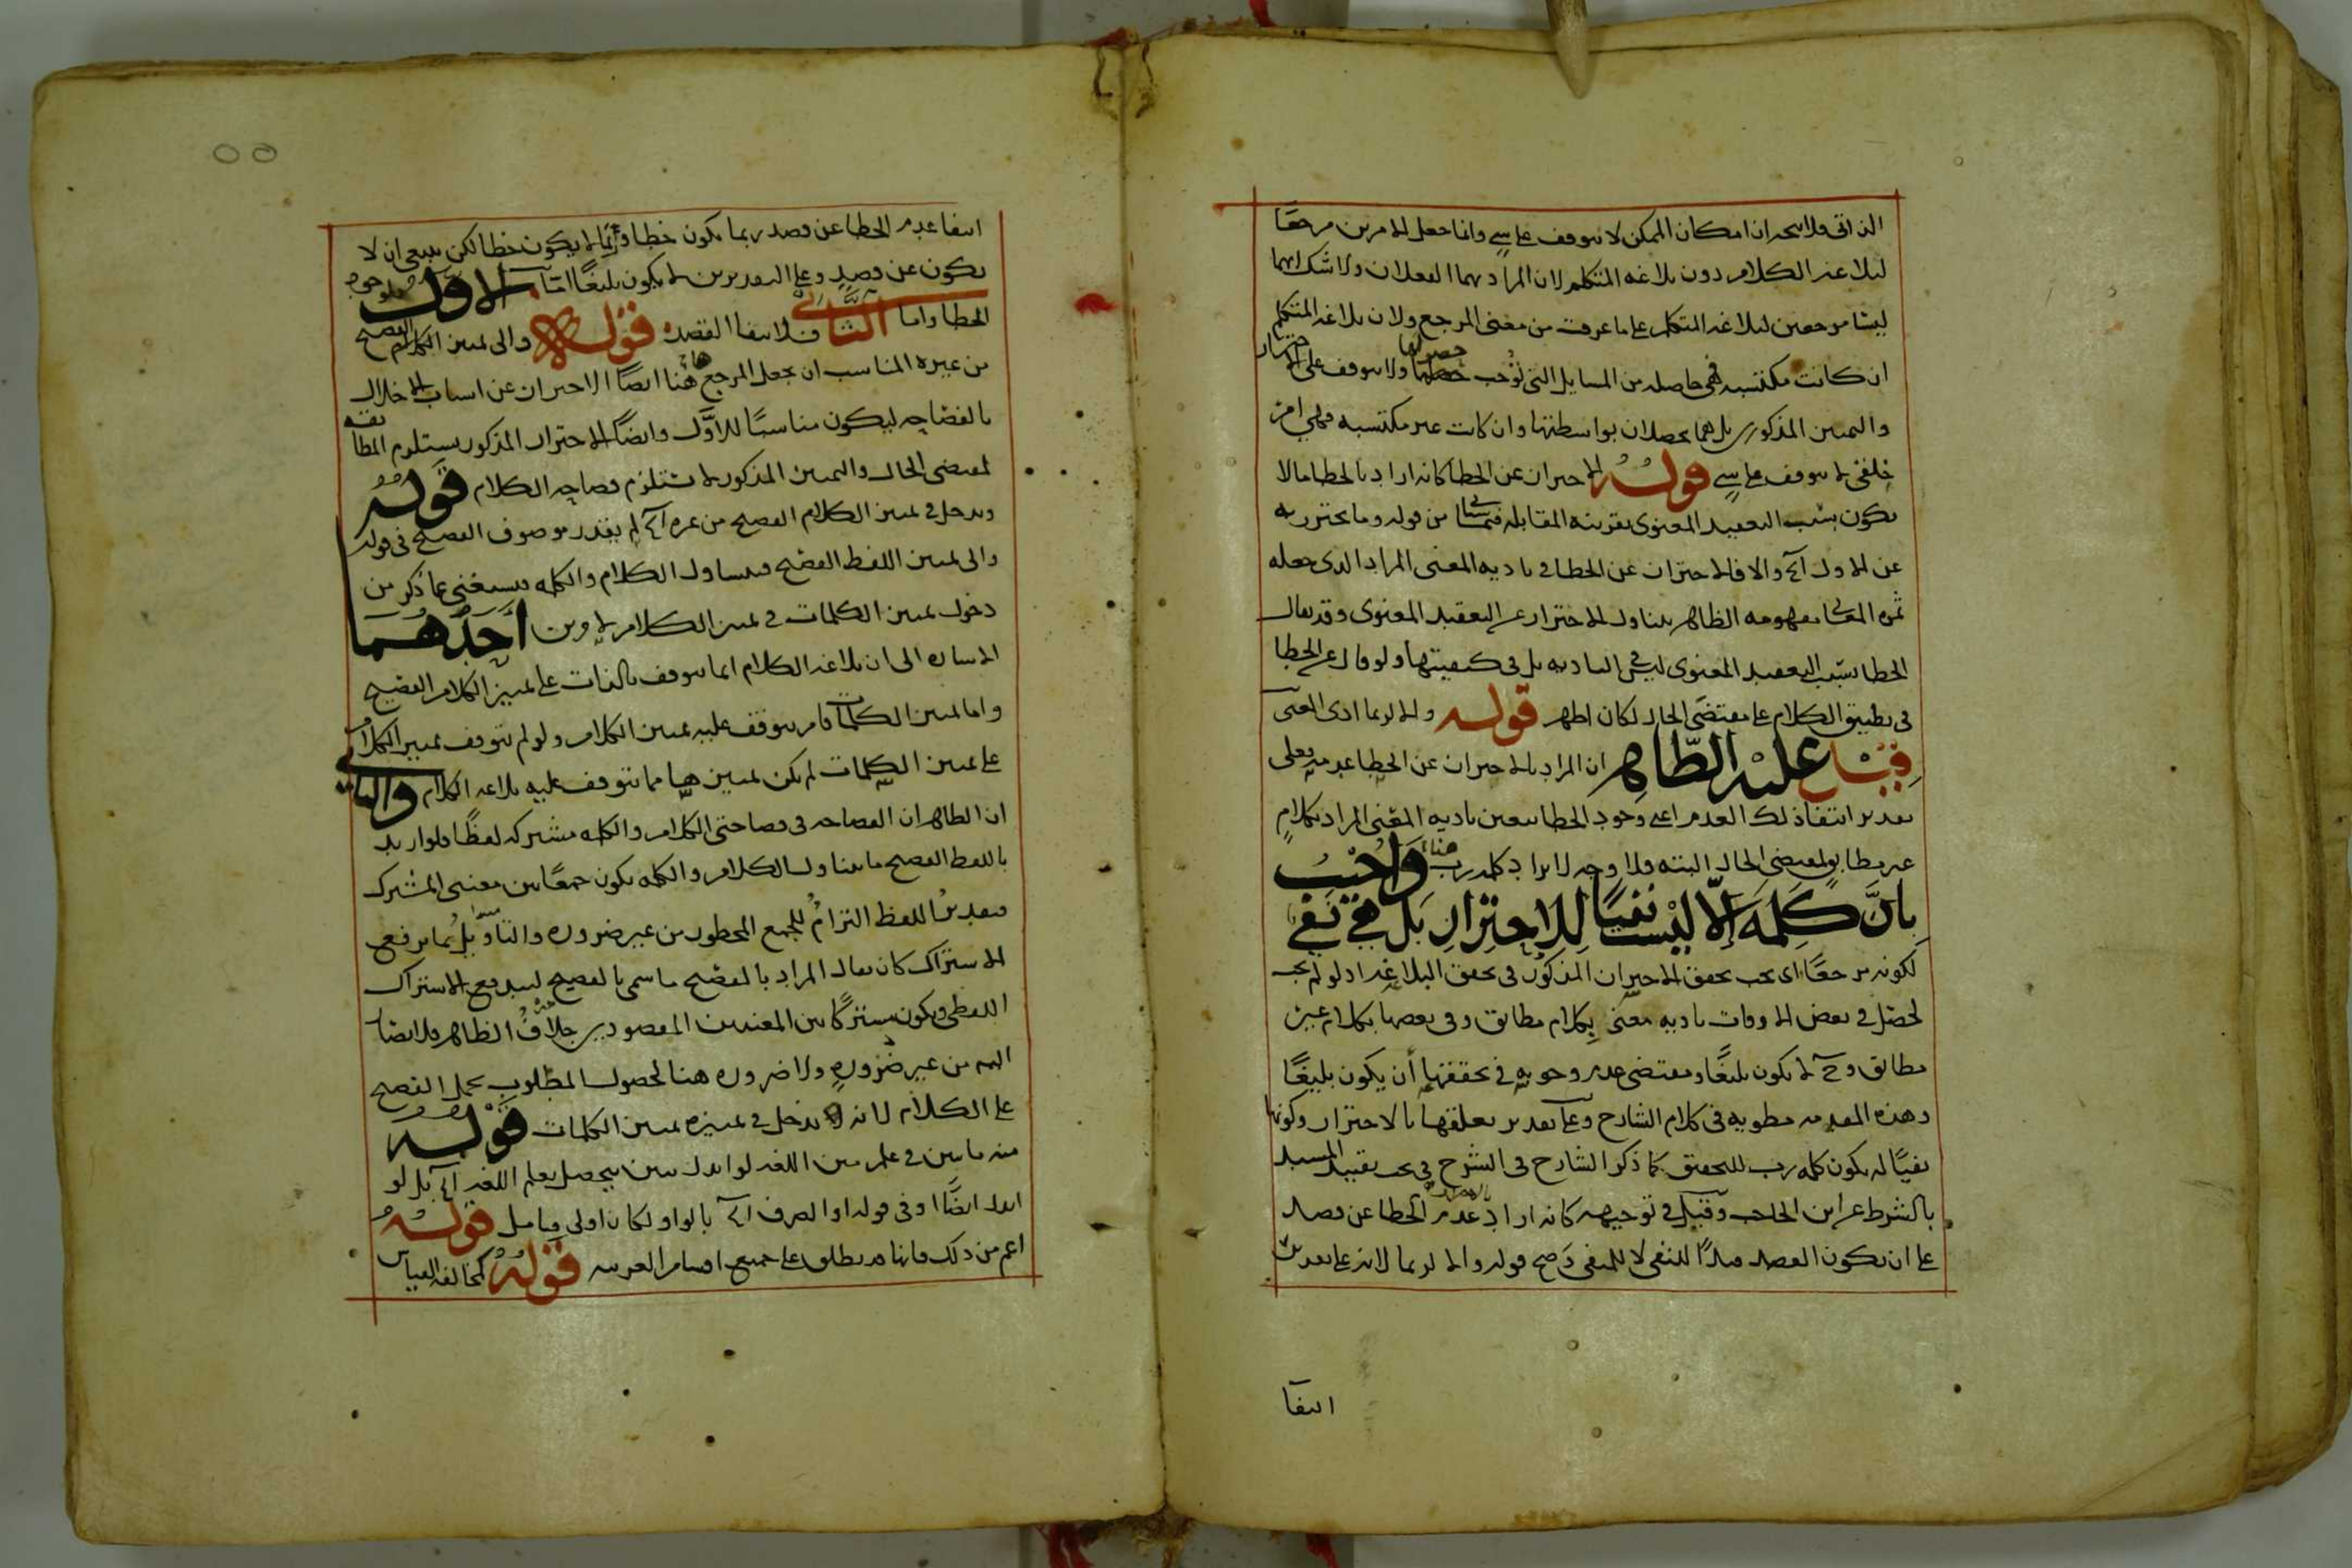 الذاتي ولا يتجه ان امكان الممكن لا يتوقف على شي وانما جعل الامرين مرجعا
لبلاغة الكلام دون بلاغة المتكلم لان المراد بهما الفعلان ولا شك انهما
ليسا مرجعين لبلاغة المتكلم على ما عرفت من معنى المرجع ولان بلاغة المتكلم
ان كانت مكتسبة فهي حاصلة من المسايل التي توجب حصولها ولا يتوقف على الاحتراز
والتمييز المذكورين بل هما يحصلان بواسطتها وان كانت غير مكتسبة فهي امر
خلقي لا يتوقف على شي قوله الاحتراز عن الخطا كانه اراد بالخطا ما لا
يكون بسبب التعقيد المعنوي بقرينة المقابلة فيما سياتي من قوله وما يحترز به
عن الاول آه والا فالاحتراز عن الخطا في تادية المعنى المراد الذي جعله
ثمرة المعاني بمفهومه الظاهر يتناول الاحتراز عن التعقيد المعنوي وقد يقال
الخطا بسبب التعقيد المعنوي ليس في التادية بل في كيفيتها ولو قال عن الخطا
في تطبيق الكلام على مقتضى الحال لكان اظهر قوله والا لربما ادى المعنى
قيل عليه الظاهر ان المراد بالاحتراز عن الخطا عدمه فعلى
تقدير انتفا ذلك العدم اعني وجود الخطا يتعين تادية المعنى المراد بكلام
غير مطابق لمقتضى الحال البتة فلا وجه لايراد كلمة رب هنا واجيب
بان كلمة الا ليست نفيا للاحتراز بل هي نفي
لكونه مرجعا اي يجب تحقق الاحتراز المذكور في تحقق البلاغة اذ لو لم يجب
لحصل في بعض الاوقات تادية معنى بكلام مطابق وفي بعضها بكلام غير
مطابق وح لا يكون بليغا ومقتضى عدم وجوبه في تحققها أن يكون بليغا
وهذه المقدمة مطوية في كلام الشارح وعلى تقدير تعلقها بالاحتراز وكونها
نفيا له يكون كلمة رب للتحقيق كما ذكر الشارح في الشرح في بحث تقييد المسند
بالشرط عن ابن الحاجب وقيل في توجيهه كانه اراد عدم الخطا عن قصد
على ان يكون القصد قيدا للنفي لا للمنفي وصح قوله والا لربما لانه على تقدير
انتفا
انتفا عدم الخطا عن قصد ربما يكون خطا وربما لا يكون خطا لكن ينبغي ان لا
يكون عن قصد وعلى التقديرين لا يكون بليغا اما الاول فلوجود
الخطا واما الثاني فلانتفا القصد قوله والى تمييز الكلام الفصيح
من غيره المناسب ان يجعل المرجع هاهنا ايضا الاحتراز عن اسباب الاخلال
بالفصاحة ليكون مناسبا للاول وايضا الاحتراز المذكور يستلزم المطابقة
لمقتضى الحال والتمييز المذكور لا يستلزم فصاحة الكلام قوله
ويدخل في تمييز الكلام الفصيح من غيره آه لم يقدر موصوف الفصيح في قوله
والى تمييز اللفظ الفصيح فيتناول الكلام والكلمة فيستغنى عما ذكر من
دخول تمييز الكلمات في تمييز الكلام لامرين أحدهما
الاشارة الى ان بلاغة الكلام انما يتوقف بالذات على تمييز الكلام الفصيح
واما تمييز الكلمات فامر يتوقف عليه تمييز الكلام ولو لم يتوقف تمييز الكلام
على تمييز الكلمات لم يكن تمييزها مما تتوقف عليه بلاغة الكلام والثاني
ان الظاهر ان الفصاحة في فصاحتي الكلام والكلمة مشتركة لفظا فلو اريد
باللفظ الفصيح ما يتناول الكلام والكلمة يكون جمعا بين معنيي المشترك
فتقدير اللفظ التزام للجمع المحظور من غير ضرورة والتاويل بما يرفع
الاشتراك كان يقال المراد بالفصيح ما سمي بالفصيح ليندفع الاشتراك
اللفظي ويكون مشتركا بين المعنيين المقصودين خلاف الظاهر فلا يصار
اليه من غير ضرورة ولا ضرورة هنا لحصول المطلوب بحمل الفصيح
على الكلام لانه يدخل في تمييزه تمييز الكلمات قوله
منه ما يبين في علم متن اللغة لو ابدل يبين بيحصل بعلم اللغة آه بل لو
ابدل ايضا او في قوله او التصريف آه بالواو لكان اولى فتامل قوله
اعم من ذلك فانها قد يطلق على جميع اقسام العربية قوله كمخالفة القياس